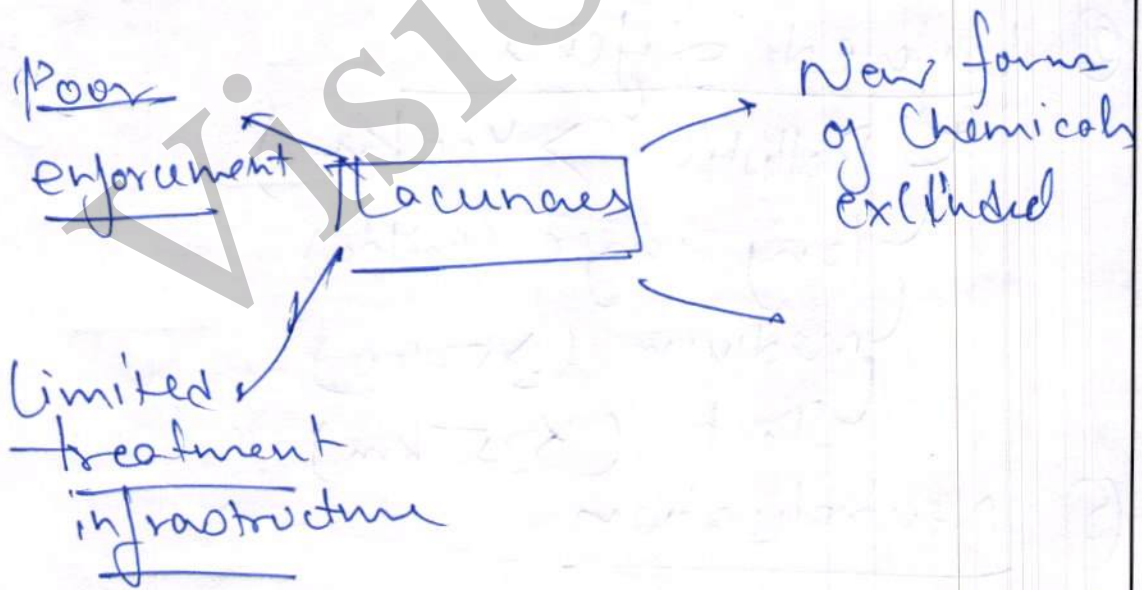 Poor
enforcement
Lacunaes
New forms
of Chemicals
excluded
Limited
treatment
infrastructure
Visio